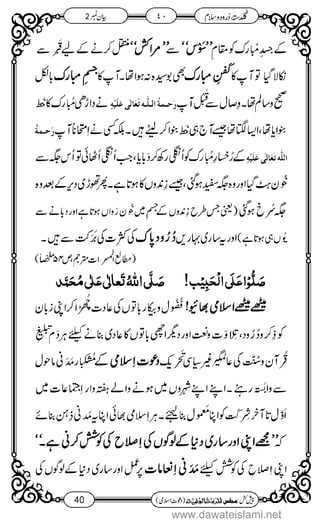 گلدستۂ دُرُود و سلام ۴۰ بیان نمبر 2
کے جسدِ مُبارَک کو مقامِ ’’سُوس‘‘ سے ’’مراکش‘‘ مُنْتَقِل کرنے کے لیے قَبْر سے
نکالا گیا تو آپ کا کَفَنِ مُبارَک بھی بوسیدہ نہ ہوا تھا۔ آپ کا جسمِ مُبارَک بالکل
صحیح و سالِم تھا۔ وِصال سے قَبْل آپ رَحمَۃُ اللّٰہِ تَعَالٰی عَلَیْہِ نے داڑھی مُبارَک کا خط
بنوایا تھا، ایسا لگتا تھا جیسے آج ہی خط بنوا کر لیٹے ہیں۔ کسی نے اِمْتِحاناً آپ رَحمَۃُ
اللّٰہِ تَعَالٰی عَلَیْہِ کے رُخسارِ مُبارَک کو اُنگلی رکھ کر دبایا، جب اُنگلی اُٹھائی تو اُس جگہ سے
خُون ہٹ گیا اور وہ جگہ سفید ہو گئی، جیسے زِندوں کا ہوتا ہے۔ پھر تھوڑی دیر کے بعد وہ
جگہ سُرخ ہوگئی (یعنی جس طرح زِندوں کے جسم میں خُون رَواں ہوتا ہے اور دبانے سے
یُوں ہی ہوتا ہے) اور یہ ساری بہاریں دُرُودِ پاک کی کثرت کی بَرَکت سے ہیں۔
(مطالع المسرات مترجم، ص۵۴ ملخصاً)
صَلُّوْا عَلَی الْحَبِیْب! صَلَّی اللہُ تَعَالٰی عَلٰی مُحَمَّد
میٹھے میٹھے اسلامی بھائیو! فُضُول و بیکار باتوں کی عادت چُھڑا کر اپنی زبان
کو ذِکر و دُرُود، تِلاوت و نعت اور دیگر اچھی باتوں کا عادی بنانے کیلئے ہر دم تبلیغِ
قُرآن و سُنَّت کی عالمگیر غیر سیاسی تحریک دعوتِ اسلامی کے مُشکبار مَدَنی ماحول
سے وابستہ رہئے۔ اپنے اپنے شہروں میں ہونے والے ہفتہ وار اِجتماعات میں
اَوَّل تا آخِر شِرکت کو اپنا معمُول بنا لیجئے۔ ہر اسلامی بھائی اپنا یہ مَدَنی ذِہن بنائے
کہ ’’مجھے اپنی اور ساری دُنیا کے لوگوں کی اِصلاح کی کوشش کرنی ہے۔‘‘
اپنی اِصلاح کی کوشش کیلئے مَدَنی اِنعامات پر عمل اور ساری دُنیا کے لوگوں کی
40 پیش کش: مجلس المدینۃ العلمیۃ (دعوتِ اسلامی)
www.dawateislami.net